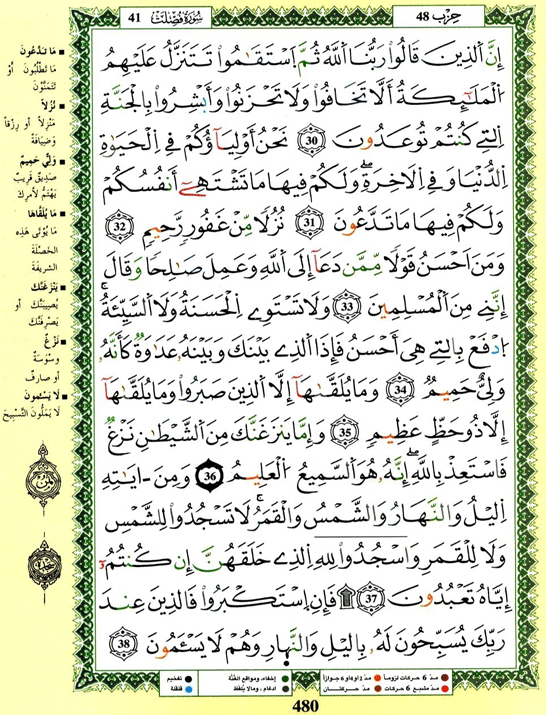 حِزْب 48
سُورَةُ فُصِّلَتْ 41
إِنَّ اَلذِينَ قَالُواْ رَبُّنَا اَللَّهُ ثُمَّ اَسْتَقَٰمُواْ تَتَنَزَّلُ عَلَيْهِمُ
اُلْمَلَٰٓئِكَةُ أَلَّا تَخَافُواْ وَلَا تَحْزَنُواْ وَأَبْشِرُواْ بِالْجَنَّةِ
اِلتِے كُنتُمْ تُوعَدُونَ 30 نَحْنُ أَوْلِيَآؤُكُمْ فِے اِلْحَيَوٰةِ
اِلدُّنْيَا وَفِے اِلَاخِرَةِ وَلَكُمْ فِيهَا مَا تَشْتَهِےٓ أَنفُسُكُمْ
وَلَكُمْ فِيهَا مَا تَدَّعُونَ 31 نُزُلٗا مِّنْ غَفُورٖ رَّحِيمٖ 32
وَمَنَ اَحْسَنُ قَوْلٗا مِّمَّن دَعَآ إِلَى اَللَّهِ وَعَمِلَ صَٰلِحٗا وَقَالَ
إِنَّنِے مِنَ اَلْمُسْلِمِينَ 33 وَلَا تَسْتَوِے اِلْحَسَنَةُ وَلَا اَلسَّيِّئَةُ
اُدْفَعْ بِالتِے هِيَ أَحْسَنُ فَإِذَا اَلذِے بَيْنَكَ وَبَيْنَهُۥ عَدَٰوَةٞ كَأَنَّهُۥ
وَلِيٌّ حَمِيمٞ 34 وَمَا يُلَقَّىٰهَآ إِلَّا اَلذِينَ صَبَرُواْ وَمَا يُلَقَّىٰهَآ
إِلَّا ذُو حَظٍّ عَظِيمٖ 35 وَإِمَّا يَنزَغَنَّكَ مِنَ اَلشَّيْطَٰنِ نَزْغٞ
فَاسْتَعِذْ بِاللَّهِ إِنَّهُۥ هُوَ اَلسَّمِيعُ اُلْعَلِيمُ 36 وَمِنَ ـ اٰيَٰتِهِ
اِليْلُ وَالنَّهَارُ وَالشَّمْسُ وَالْقَمَرُ لَا تَسْجُدُواْ لِلشَّمْسِ
وَلَا لِلْقَمَرِ وَاسْجُدُواْ لِلهِ اِلذِے خَلَقَهُنَّ إِن كُنتُمُۥٓ
إِيَّاهُ تَعْبُدُونَ 37 ۞ فَإِنِ اِسْتَكْبَرُواْ فَالذِينَ عِندَ
رَبِّكَ يُسَبِّحُونَ لَهُۥ بِاليْلِ وَالنَّهَارِ وَهُمْ لَا يَسْـَٔمُونَ ۩ 38
■ مَا تَدَّعُونَ
مَا تَطْلُبُونَ أَوْ
تَتَمَنَّوْنَ
■ نُزُلًا
مَنْزِلًا أو رِزْقاً
وَضِيَافَةً
■ وَلِيٌّ حَمِيمٌ
صَدِيقٌ قَرِيبٌ
يَهْتَمُّ لأَمرِكَ
■ مَا يُلَقَّاهَا
مَا يُؤْتَى هَذِهِ
الخَصْلَةَ
الشريفةَ
■ يَنْزَغَنَّكَ
يُصِيبَنَّكَ أو
يَصْرِفَنَّكَ
■ نَزْغٌ
وَسْوَسَةٌ
أو صَارِفٌ
■ لَا يَسْئَمُونَ
لَا يَمَلُّونَ التَّسْبِيحَ
ثُمُن
سَجْدَة
مدّ 6 حركات لزوماً
مدّ 2 أو 4 أو 6 جوازاً
مدّ مشبع 6 حركات
مدّ حركتان
إخفاء، ومواقع الغُنَّة
ادغام ، وما لا يُلفَظ
تفخيم
قلقلة
480